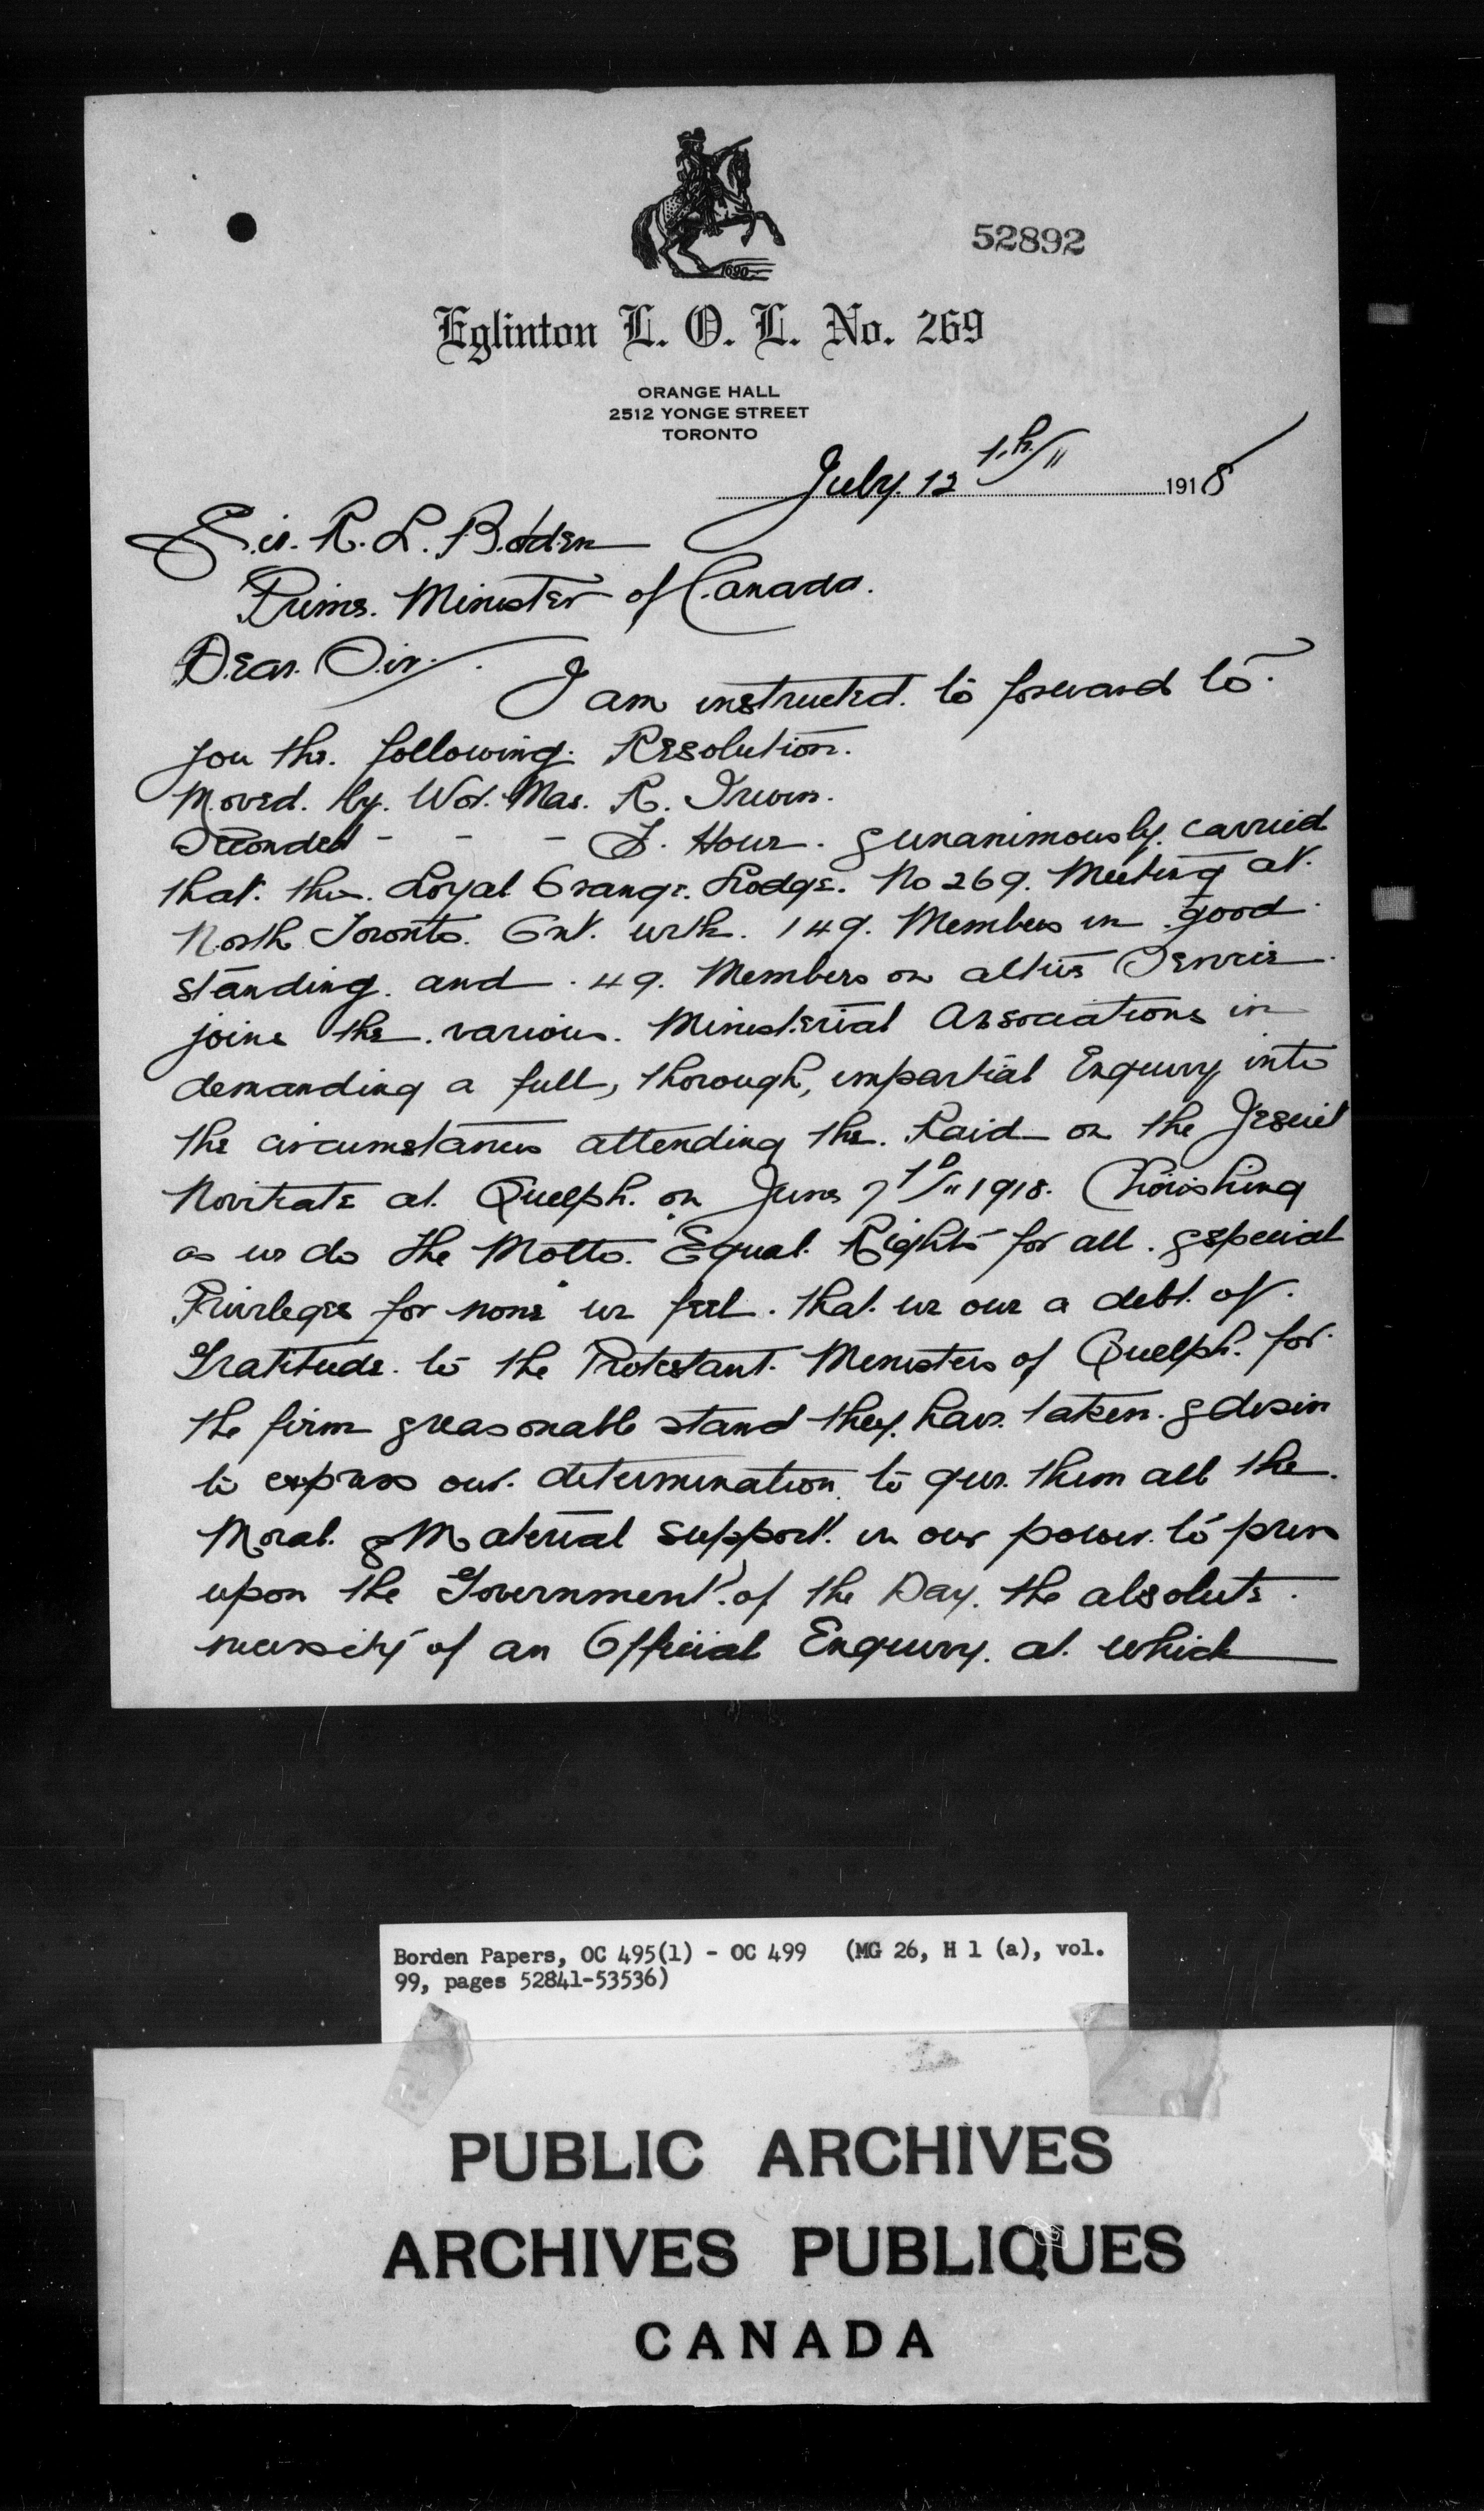 52892
1690
Eglinton L. O. L. No. 269
ORANGE HALL
2512 YONGE STREET
TORONTO
July. 12th/11 1918
Sir. R. L. Borden
Prime. Minister of Canada.
Dear. Sir.
I am instructed. to forward to.
you the. following. Resolution.
Moved. by. Wor. Mas. R. Irwin.
Seconded - - - Hour. & unanimously. carried
that. this. Loyal Orange. Lodge. No 269. Meeting at.
North Toronto. Ont. with. 149. Members in good.
standing. and. 49. Members on active Service.
joins the. various. Ministerial Associations in
demanding a full, thorough, impartial Enquiry into
the circumstances attending the. Raid on the Jesuit
Novitiate at. Guelph. on June 7th/11 1918. Cherishing
as we do the Motto. "Equal. Rights for all. & special
Privileges for none" we feel. that. we owe a debt. of.
Gratitude. to the Protestant. Ministers of Guelph. for.
the firm & reasonable stand they. have. taken. & desire
to express our. determination. to give. them all the.
Moral. & Material support. in our power. to press
upon the Government. of the Day. the absolute.
necessity of an Official Enquiry. at. which
Borden Papers, OC 495(1) - OC 499 (MG 26, H 1 (a), vol.
99, pages 52841-53536)
PUBLIC ARCHIVES
ARCHIVES PUBLIQUES
CANADA